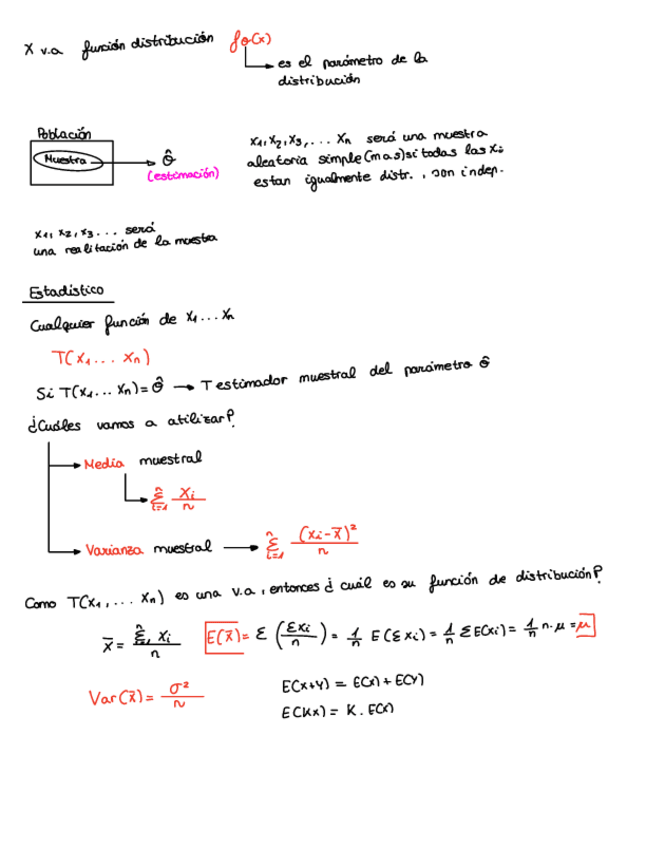 X v.a función distribución fθ(x)
es el parámetro de la
distribución
Población
Muestra → θ̂
(estimación)
X1, X2, X3, ... Xn será una muestra
aleatoria simple (m a s) si todas las Xi
estan igualmente distr. , son indep.
x1, x2, x3 ... será
una realitación de la muestra
Estadístico
Cualquier función de X1 ... Xn
T(X1 ... Xn)
Si T(X1 ... Xn) = θ̂ → T estimador muestral del parámetro θ̂
¿Cuáles vamos a atilizar?
Media muestral
n Σ i=1 Xi / n
Varianza muestral → n Σ i=1 (xi - x̄)² / n
Como T(X1, ... Xn) es una v.a , entonces ¿ cuál es su función de distribución?
x̄ = n Σ i=1 xi / n E(x̄) = E (Σxi / n) = 1/n E(Σxi) = 1/n ΣE(xi) = 1/n n·μ = μ
Var(x̄) = σ² / n
E(x+y) = E(x) + E(y)
E(Kx) = K . E(x)